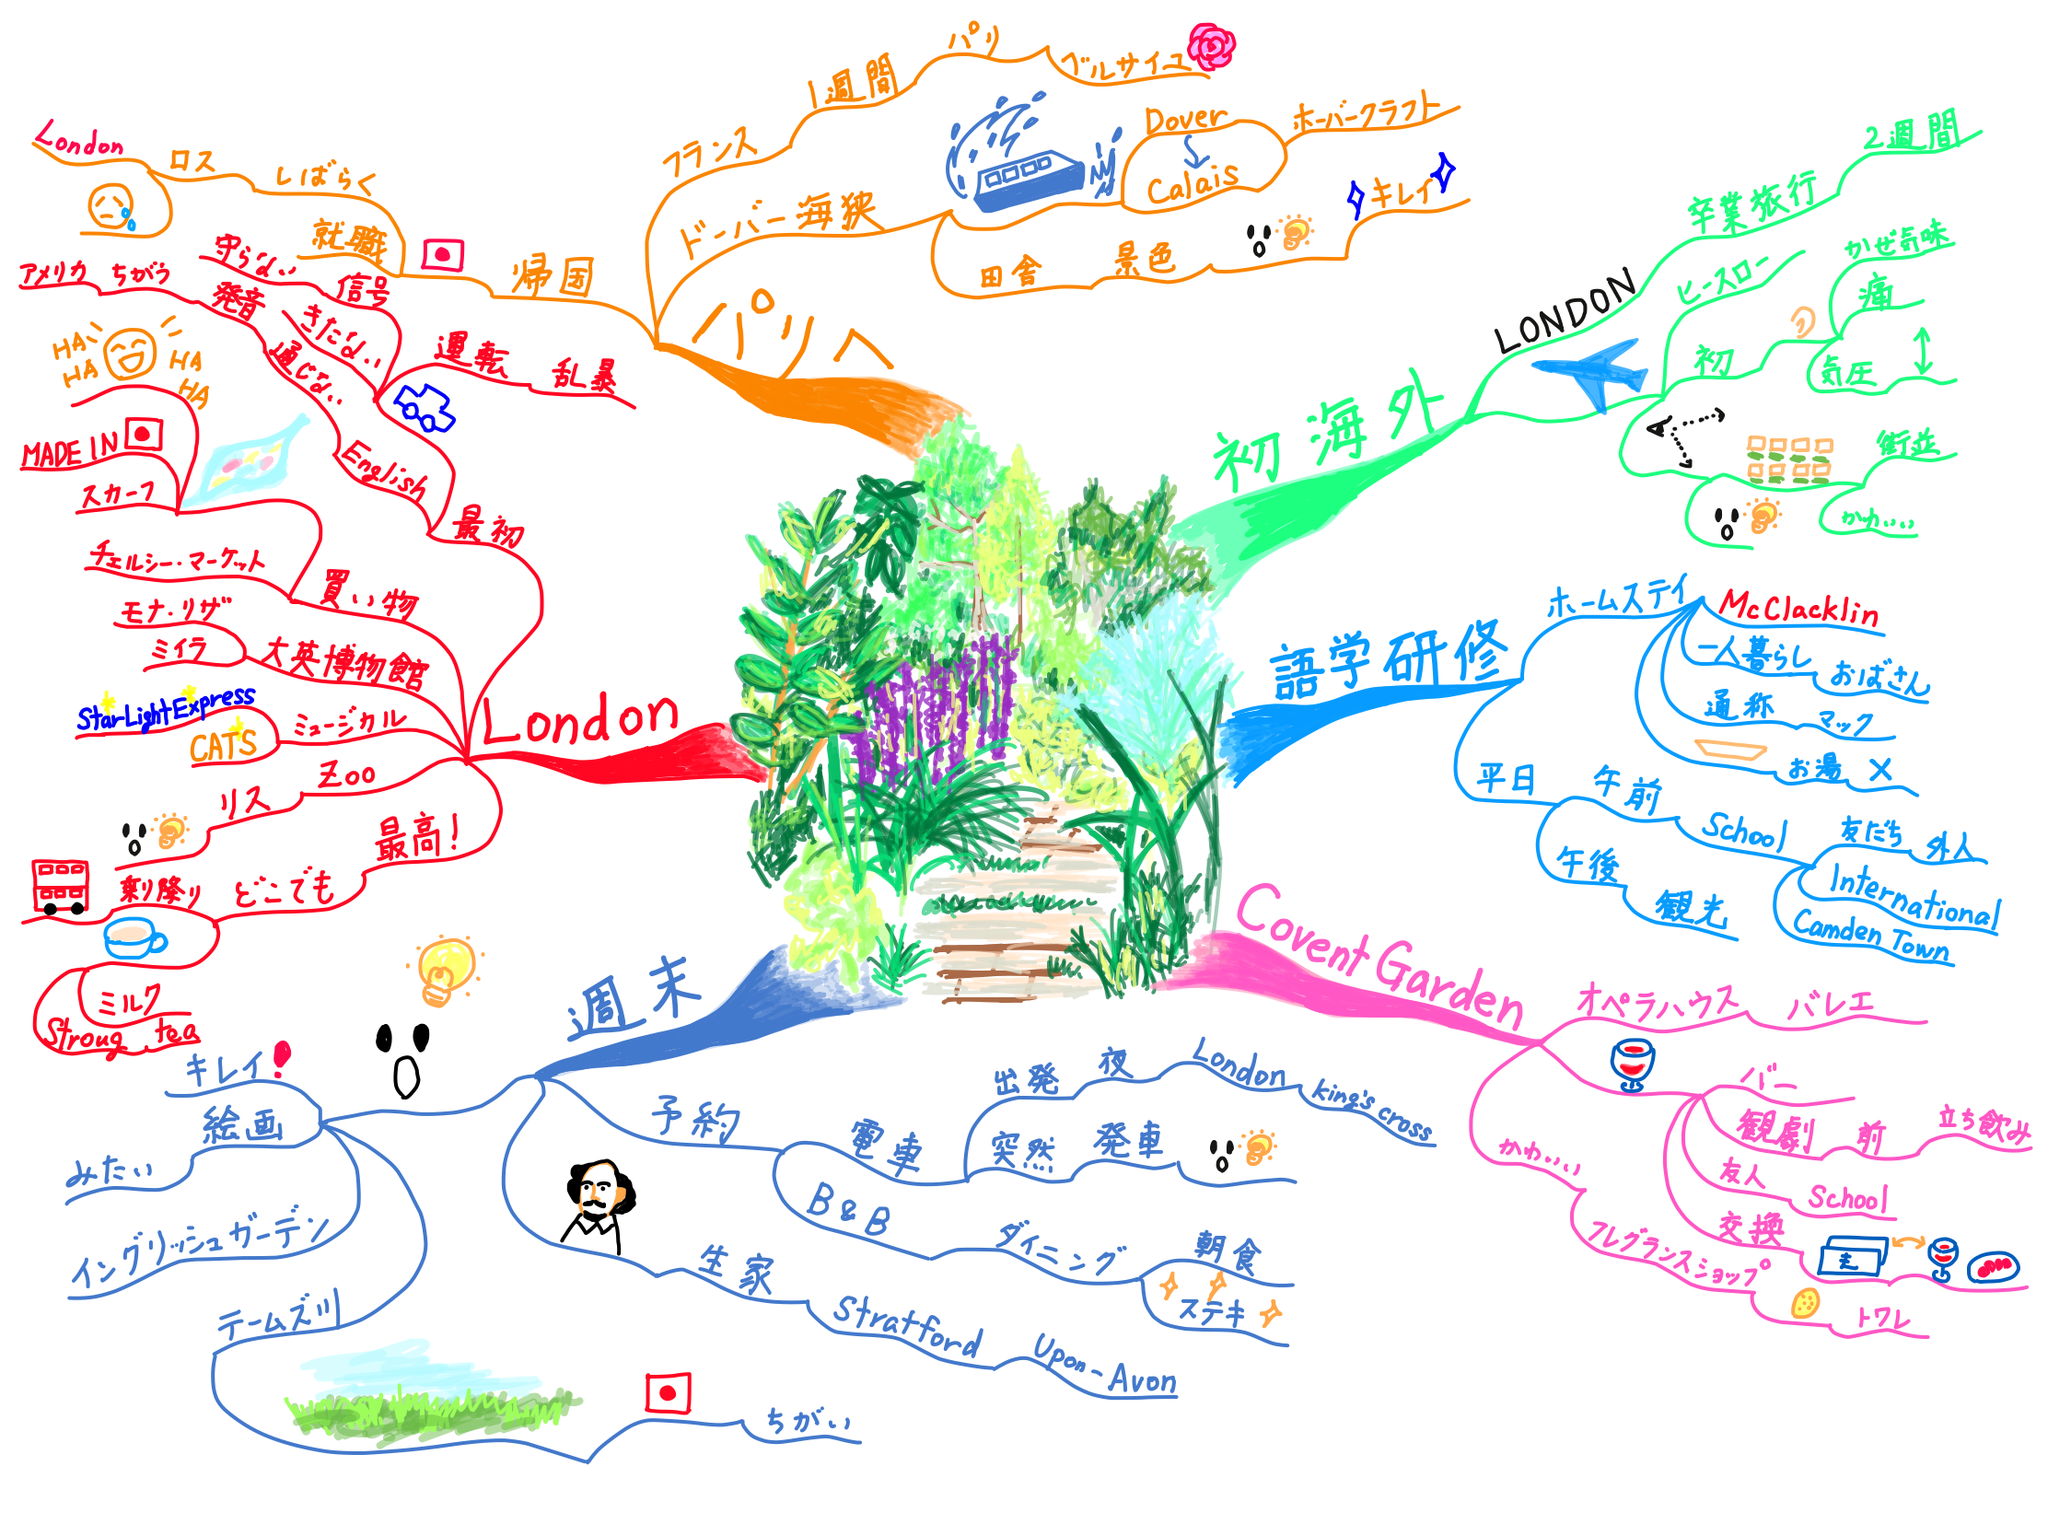 初海外
LONDON
卒業旅行
2週間
ヒースロー
初
かぜ気味
痛
気圧
街並
かわいい
語学研修
ホームステイ
McClacklin
一人暮らし おばさん
通称 マック
お湯 ×
平日
午前 School
友だち 外人
International
Camden Town
午後 観光
Covent Garden
オペラハウス バレエ
バー
観劇 前 立ち飲み
友人 School
交換
かわいい
フレグランスショップ
トワレ
週末
予約
電車
出発 夜 London King's cross
突然 発車
B&B
ダイニング
朝食
ステキ
生家
Stratford Upon-Avon
キレイ!
絵画
みたい
イングリッシュガーデン
テームズ川
ちがい
London
最初
運転 乱暴
信号 守らない
きたない
English
発音 ちがう アメリカ
通じない
買い物
スカーフ
MADE IN
HA HA HA HA HA
チェルシー・マーケット
大英博物館
モナ・リザ
ミイラ
ミュージカル
StarLightExpress
CATS
Zoo
リス
最高!
どこでも
乗り降り
ミルク
Stroug tea
パリへ
フランス
1週間
パリ
ベルサイユ
ドーバー海狭
Dover
Calais
ホーバークラフト
田舎 景色
キレイ
帰国
就職
しばらく
ロス
London